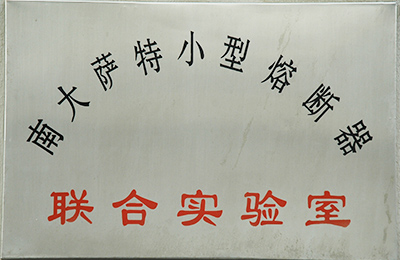 南大萨特小型熔断器
联合实验室